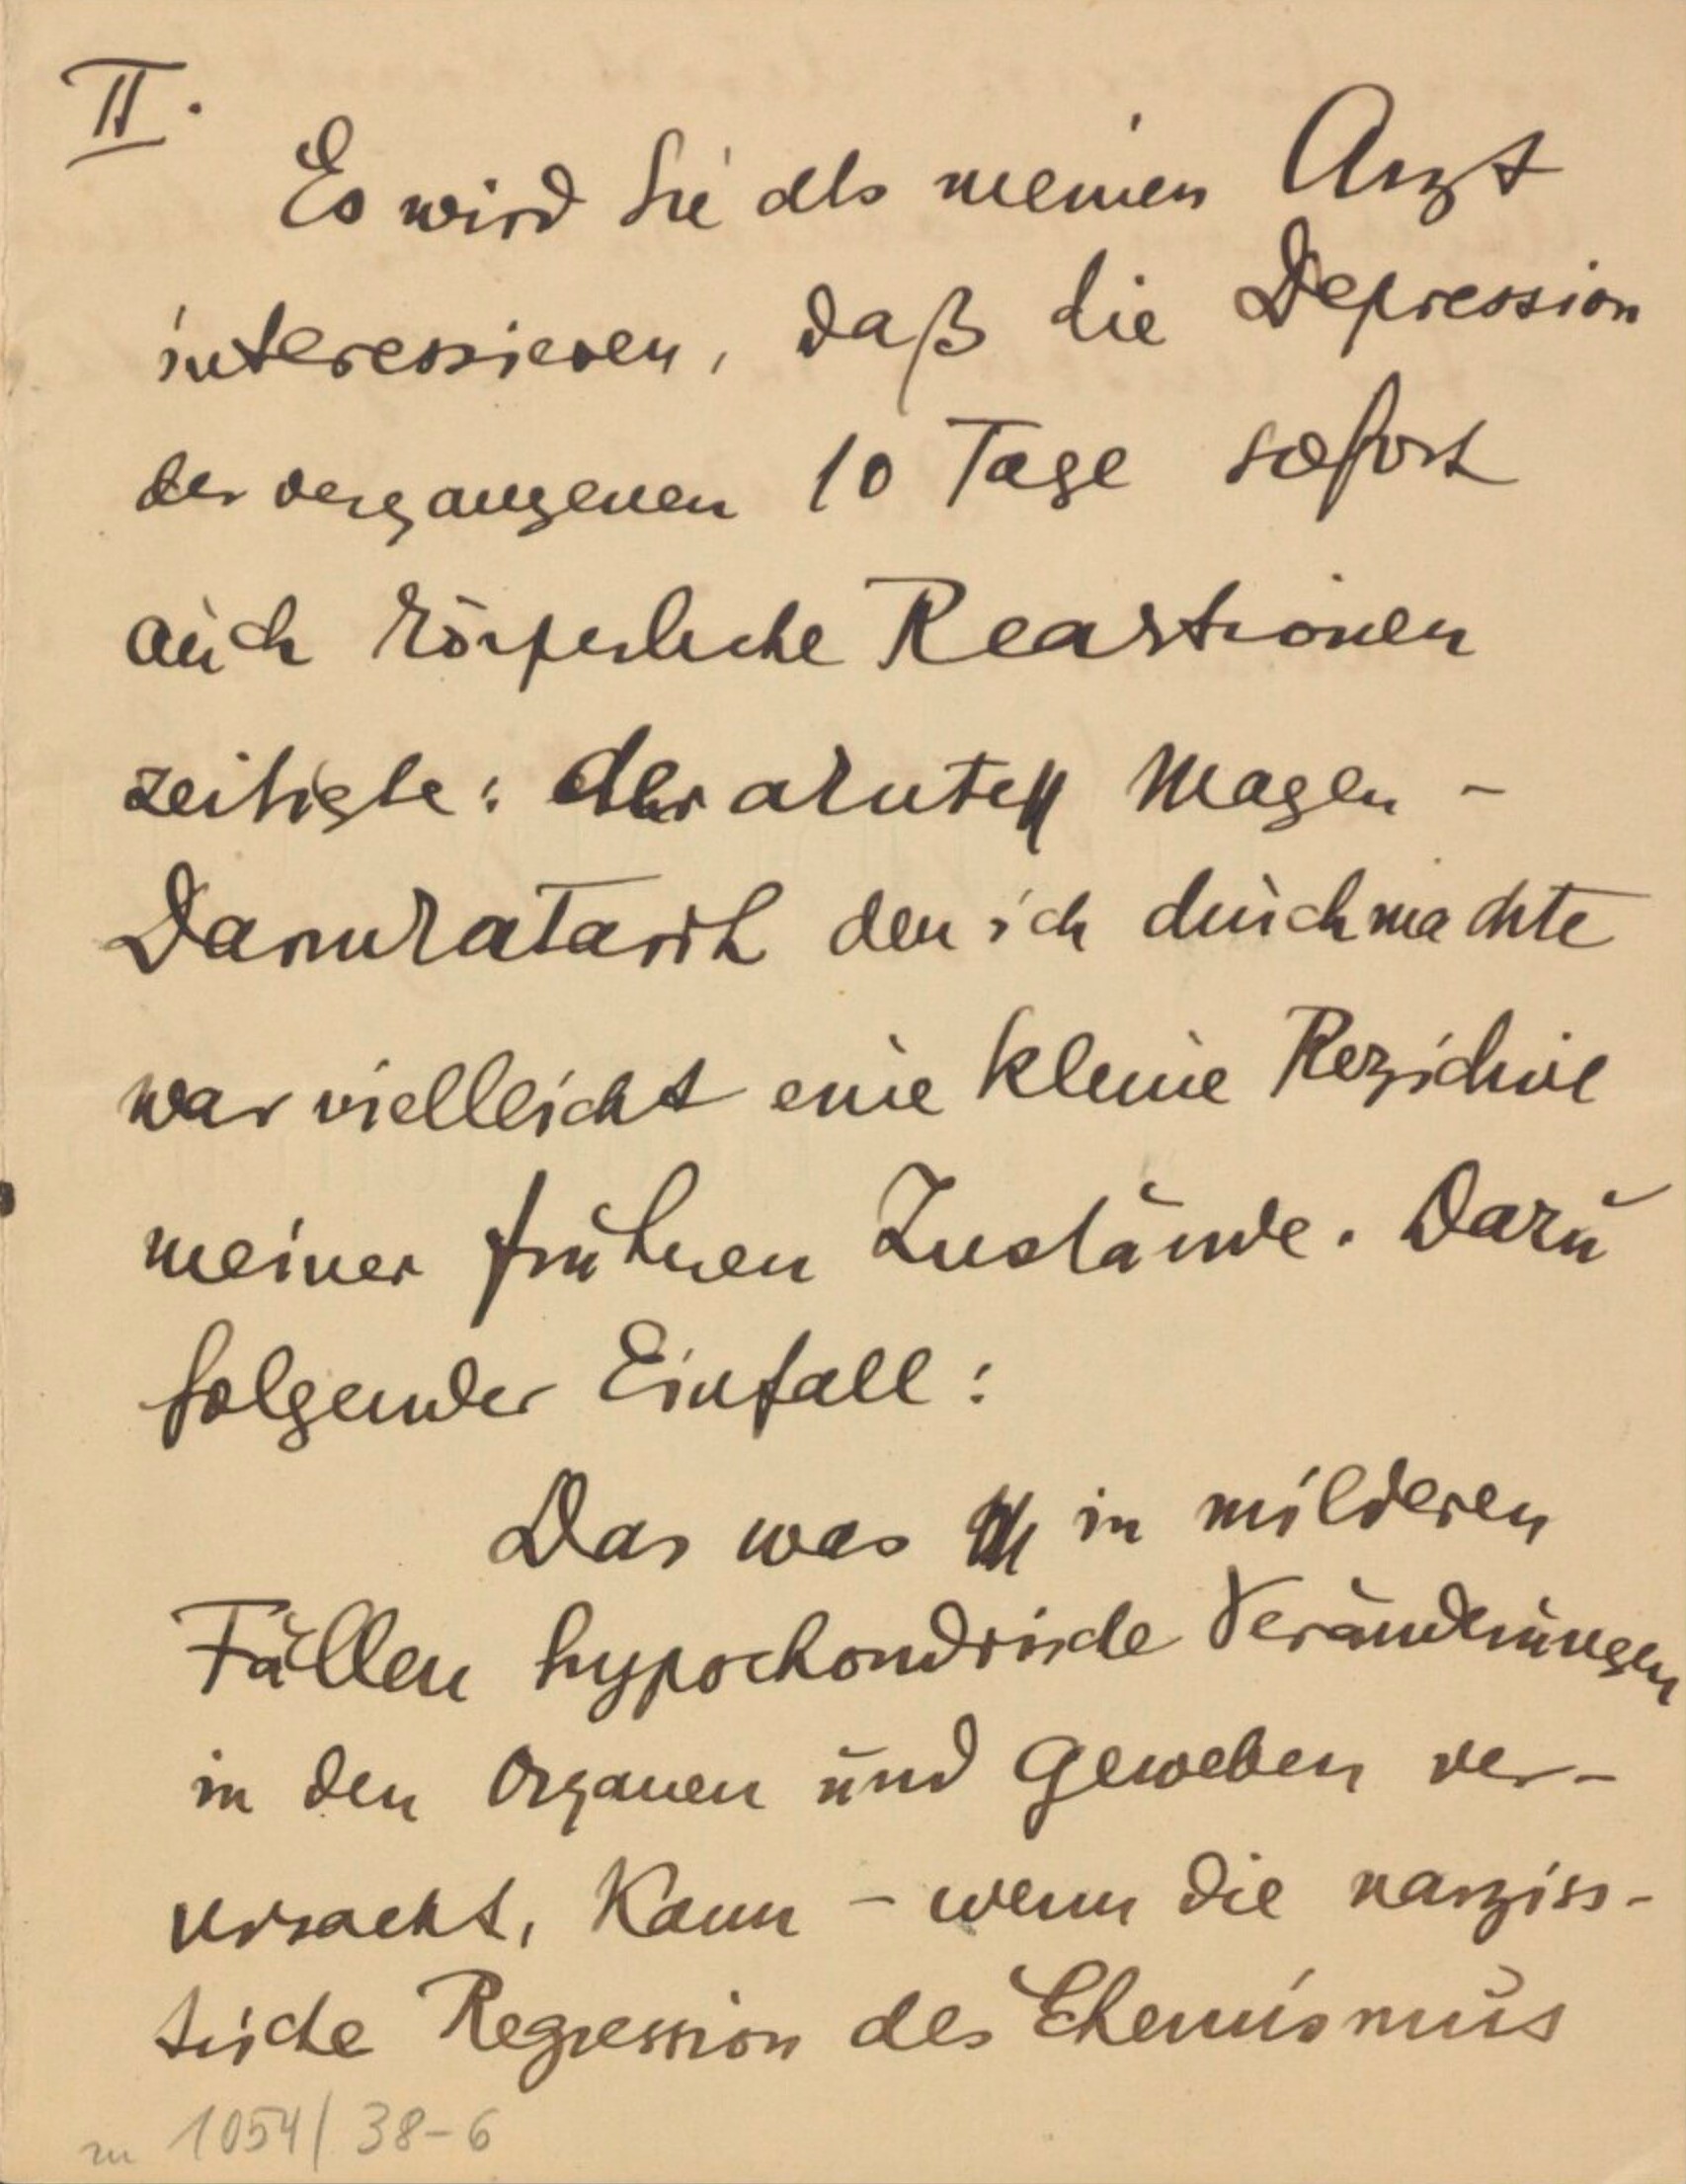 II.
Es wird Sie als meinen Arzt
interessieren, daß die Depression
der vergangenen 10 Tage sofort
auch körperliche Reaktionen
zeitigte: der akute Magen-
Darmkatarrh den ich durchmachte
war vielleicht eine kleine Rezidive
meiner frühren Zustände. Dazu
folgender Einfall:
Das was in milderen
Fällen hypochondrische Veränderungen
in den Organen und Geweben ver-
ursacht, kann – wenn die narziss-
tische Regression des Chemismus
zu 1054/38-6